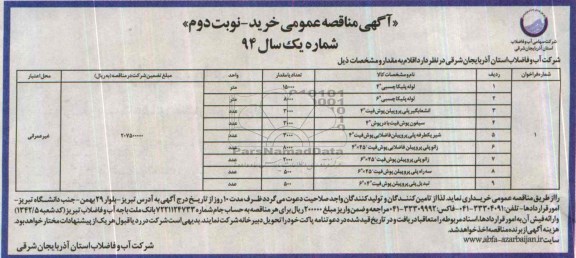 «آگهی مناقصه عمومی خرید-نوبت دوم»
شماره یک سال ۹۴
شرکت سهامی آب و فاضلاب
استان آذربایجان شرقی
شرکت آب و فاضلاب استان آذربایجان شرقی در نظر دارد اقلام به مقدار و مشخصات ذیل
شماره فراخوان ردیف نام و مشخصات کالا تعداد یا مقدار واحد مبلغ تضمین شرکت در مناقصه (به ریال) محل اعتبار
۱ لوله پلیکا چسبی ۴" ۱۵۰۰۰ متر
۲ لوله پلیکا چسبی ۶" ۵۰۰۰ متر
۳ انشعابگیر پلی پروپیلن پوش فیت ۳۰۰۰ عدد
۴ سیفون پوش فیت با درپوش ۶" ۲۰۰۰ عدد
۱ ۵ شیر یکطرفه پلی پروپیلن فاضلابی پوش فیت ۳۰۰۰ عدد ۲۰۷۵۰۰۰۰۰ غیر عمرانی
۶ زانو پلی پروپیلن پوش فیت ۴۵*۶" عدد
۷ زانو پلی پروپیلن پوش فیت ۴۵*۶" ۲۰۰۰ عدد
۸ سه راه پلی پروپیلن پوش فیت ۵۰۰ عدد
۹ تبدیل پلی پروپیلن پوش فیت ۵۰۰ عدد
ParsNamadData
را از طریق مناقصه عمومی خریداری نماید. لذا از تامین کنندگان و تولید کنندگان واجد صلاحیت دعوت می گردد ظرف مدت ۱۰ روز از تاریخ درج آگهی به آدرس تبریز- بلوار ۲۹ بهمن- جنب دانشگاه تبریز-
امور قراردادها- تلفن: ۳۳۳۰۴۰۹۱-۰۴۱ فاکس: ۳۳۳۰۹۹۹۲-۰۴۱ مراجعه و ضمن واریز مبلغ ۲۰۰۰۰۰ ریال برای هر مناقصه به حساب جام شماره ۷۲۲۱۱۲۴۷۲۳ بانک ملت باجه آب و فاضلاب تبریز (کد شعبه ۱۳۴۲/۵)
و ارائه فیش آن به امور قراردادها اسناد مربوطه را متعاقبا دریافت و در تاریخ قید شده در دعوتنامه پاکت خود را تحویل دبیرخانه شرکت نمایند. بدیهی است شرکت در رد یا قبول هر یک از پیشنهادات مختار خواهد بود.
هزینه آگهی از برنده مناقصه اخذ خواهد شد.
سایت www.abfa-azarbaijan.ir
شرکت آب و فاضلاب استان آذربایجان شرقی